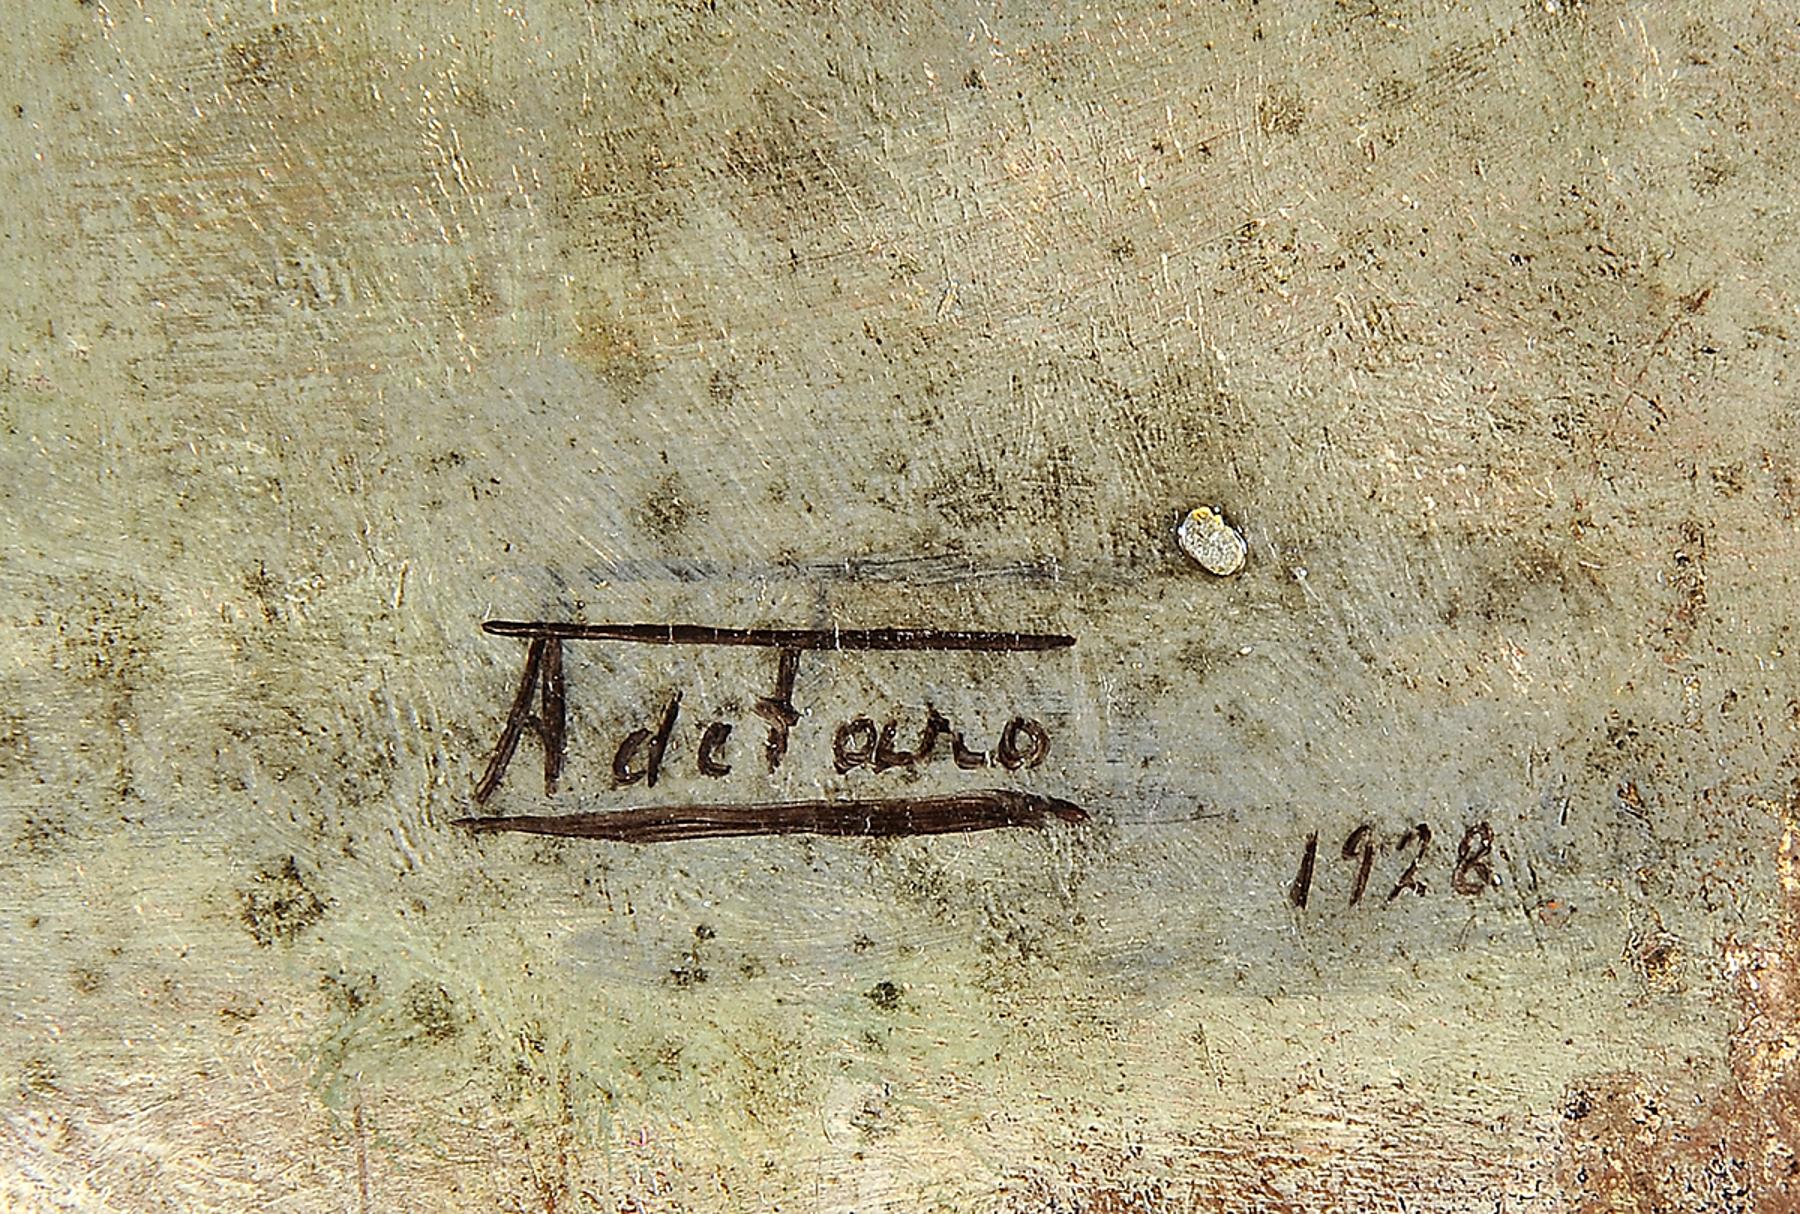 A de Taro
1928